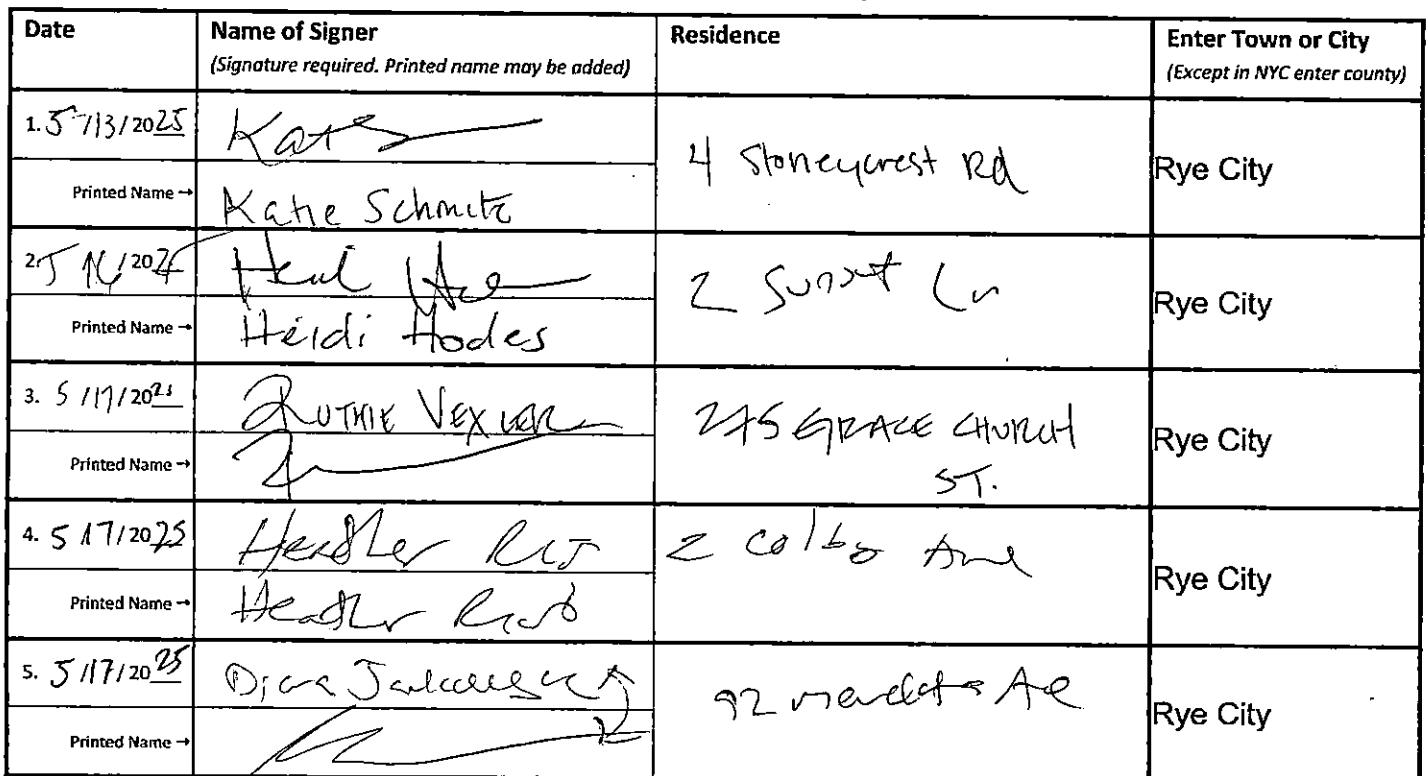 Date
Name of Signer
(Signature required. Printed name may be added)
Residence
Enter Town or City
(Except in NYC enter county)
1. 5/13/2025
Kat
4 Stoneycrest Rd
Rye City
Printed Name →
Katie Schmitz
2. 5 16/2025
2 Sunset Ln
Rye City
Printed Name →
Heidi Hodes
3. 5/17/2025
RUTHIE VEXLER
275 GRACE CHURCH
ST.
Rye City
Printed Name →
4. 5 17/2025
Heather
2 Colby Ave
Rye City
Printed Name →
Heather
5. 5/17/2025
Diana
92
Rye City
Printed Name →